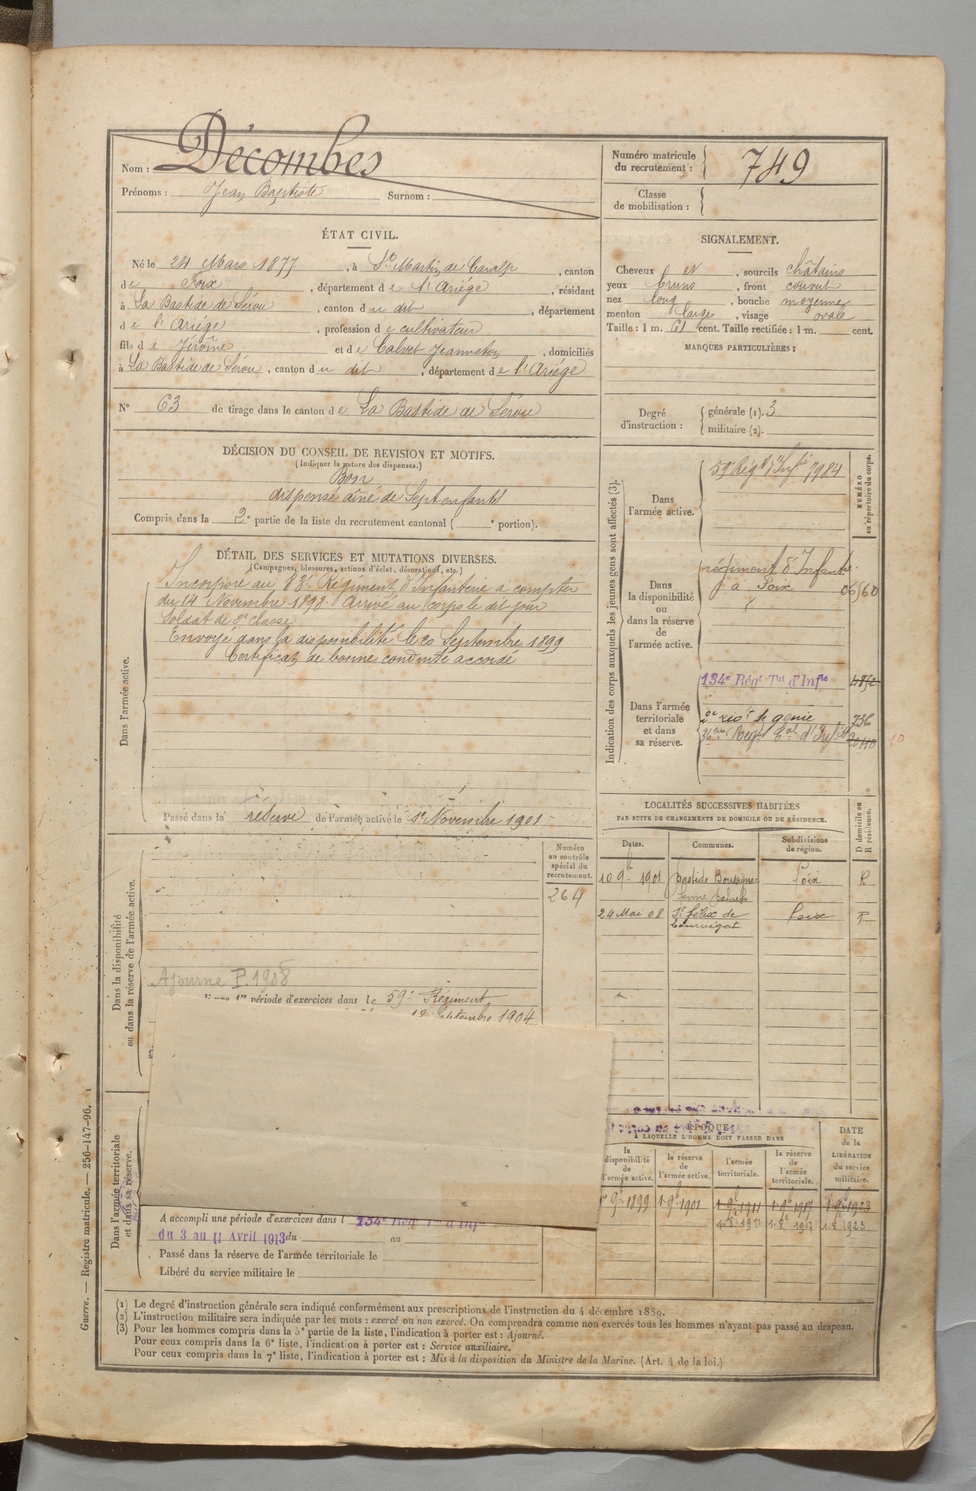 Nom : Décombes
Prénoms : Jean Baptiste Surnom :
Numéro matricule du recrutement : 749
Classe de mobilisation :
ÉTAT CIVIL.
Né le 24 Mars 1877, à St Martin de Caralp, canton
de Foix, département de l'Ariége, résidant
à La Bastide de Sérou, canton du dit, département
de l'Ariége, profession de cultivateur
fils de Jérôme et de Calvet Jeanneton, domiciliés
à La Bastide de Sérou, canton du dit, département de l'Ariége
N° 63 de tirage dans le canton de La Bastide de Sérou
SIGNALEMENT.
Cheveux et, sourcils châtains
yeux bruns, front couvert
nez long, bouche moyenne
menton large, visage ovale
Taille : 1 m. 61 cent. Taille rectifiée : 1 m. cent.
MARQUES PARTICULIÈRES :
Degré d'instruction : générale (1). 3
militaire (2).
DÉCISION DU CONSEIL DE REVISION ET MOTIFS.
(Indiquer la nature des dispenses.)
Bon
dispensé aîné de Sept enfants
Compris dans la 2e partie de la liste du recrutement cantonal ( e portion).
DÉTAIL DES SERVICES ET MUTATIONS DIVERSES.
(Campagnes, blessures, actions d'éclat, décorations, etc.)
Dans l'armée active.
Incorporé au 83e Régiment d'Infanterie à compter
du 14 Novembre 1898. Arrivé au corps le dit jour
Soldat de 2e classe
Envoyé dans la disponibilité le 20 Septembre 1899
Certificat de bonne conduite accordé
Passé dans la réserve de l'armée active le 1er Novembre 1901
Indication des corps auxquels les jeunes gens sont affectés (3).
NUMÉRO au répertoire du corps.
Dans l'armée active.
59e Régt d'Infie 7984
Dans la disponibilité ou dans la réserve de l'armée active.
régiment d'Infanterie
à Foix
Dans l'armée territoriale et dans sa réserve.
134e Régt Tal d'Infie
2e rést de génie 736
Regt d'Infie
LOCALITÉS SUCCESSIVES HABITÉES
PAR SUITE DE CHANGEMENTS DE DOMICILE OU DE RÉSIDENCE.
Dates. Communes. Subdivisions de région. D domicile ou R résidence.
10 9e 1901 Bastide Foix R
24 Mai 08 St Félix de Tournégat Foix R
Dans la disponibilité ou dans la réserve de l'armée active.
Numéro au contrôle spécial du recrutement.
264
Ajourné P. 1908
1re période d'exercices dans le 59e Régiment
Septembre 1904
Dans l'armée territoriale et dans sa réserve.
A accompli une période d'exercices dans l 134e Régt Tal d'Infie
du 3 au 11 Avril 1913 du au
Passé dans la réserve de l'armée territoriale le
Libéré du service militaire le
ÉPOQUE
À LAQUELLE L'HOMME DOIT PASSER DANS
la disponibilité de l'armée active. la réserve de l'armée active. l'armée territoriale. la réserve de l'armée territoriale. DATE de la LIBÉRATION du service militaire.
9e 1899 1 9e 1901 1 9e 1911 1 9e 1917 1 9e 1923
1 8e 1911 1 8e 1917 1 8e 1923
(1) Le degré d'instruction générale sera indiqué conformément aux prescriptions de l'instruction du 4 décembre 1889.
(2) L'instruction militaire sera indiquée par les mots : exercé ou non exercé. On comprendra comme non exercés tous les hommes n'ayant pas passé au drapeau.
(3) Pour les hommes compris dans la 5e partie de la liste, l'indication à porter est : Ajourné.
Pour ceux compris dans la 6e liste, l'indication à porter est : Service auxiliaire.
Pour ceux compris dans la 7e liste, l'indication à porter est : Mis à la disposition du Ministre de la Marine. (Art. 4 de la loi.)
Guerre. — Registre matricule. — 256-147-96.